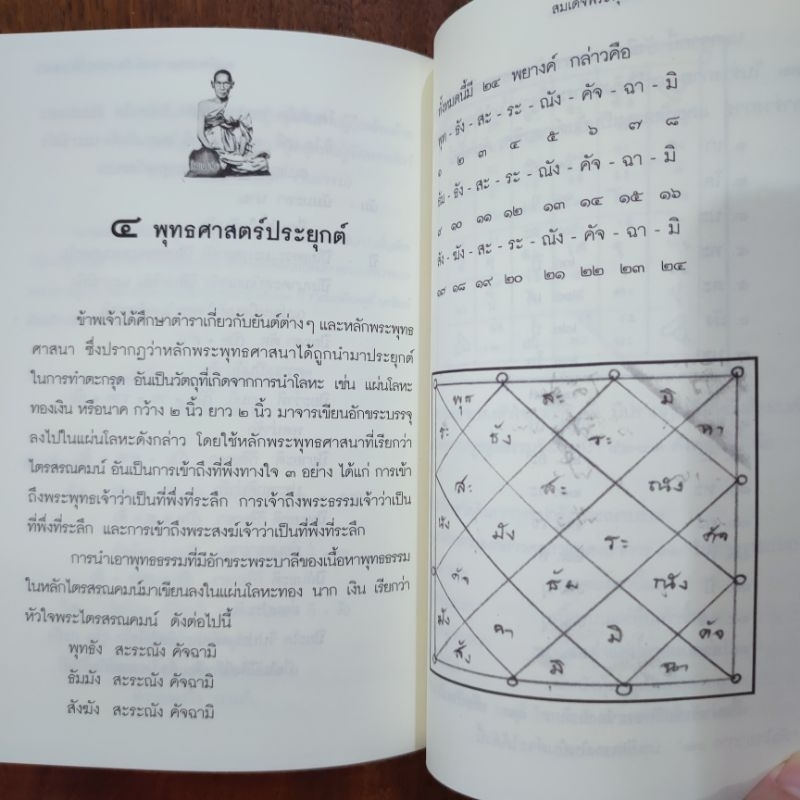 ๔ พุทธศาสตร์ประยุกต์
ข้าพเจ้าได้ศึกษาตำราเกี่ยวกับยันต์ต่างๆ และหลักพระพุทธ
ศาสนา ซึ่งปรากฏว่าหลักพระพุทธศาสนาได้ถูกนำมาประยุกต์
ในการทำตะกรุด อันเป็นวัตถุที่เกิดจากการนำโลหะ เช่น แผ่นโลหะ
ทองเงิน หรือนาค กว้าง ๒ นิ้ว ยาว ๒ นิ้ว มาจารเขียนอักขระบรรจุ
ลงไปในแผ่นโลหะดังกล่าว โดยใช้หลักพระพุทธศาสนาที่เรียกว่า
ไตรสรณคมน์ อันเป็นการเข้าถึงที่พึ่งทางใจ ๓ อย่าง ได้แก่ การเข้า
ถึงพระพุทธเจ้าว่าเป็นที่พึ่งที่ระลึก การเข้าถึงพระธรรมเจ้าว่าเป็น
ที่พึ่งที่ระลึก และการเข้าถึงพระสงฆ์เจ้าว่าเป็นที่พึ่งที่ระลึก
การนำเอาพุทธธรรมที่มีอักขระพระบาลีของเนื้อหาพุทธธรรม
ในหลักไตรสรณคมน์มาเขียนลงในแผ่นโลหะทอง นาก เงิน เรียกว่า
หัวใจพระไตรสรณคมน์ ดังต่อไปนี้
พุทธัง สะระณัง คัจฉามิ
ธัมมัง สะระณัง คัจฉามิ
สังฆัง สะระณัง คัจฉามิ
ทั้งหมดนี้มี ๒๔ พยางค์ กล่าวคือ
พุท - ธัง - สะ - ระ - ณัง - คัจ - ฉา - มิ
๑ ๒ ๓ ๔ ๕ ๖ ๗ ๘
ธัม - มัง - สะ - ระ - ณัง - คัจ - ฉา - มิ
๙ ๑๐ ๑๑ ๑๒ ๑๓ ๑๔ ๑๕ ๑๖
สัง - ฆัง - สะ - ระ - ณัง - คัจ - ฉา - มิ
๑๗ ๑๘ ๑๙ ๒๐ ๒๑ ๒๒ ๒๓ ๒๔
พุท สะ มิ
ระ ธัง ระ
สะ สะ ณัง
มัง ระ คัจ
ธัม ณัง
มิ คัจ
สัง มิ ฉา